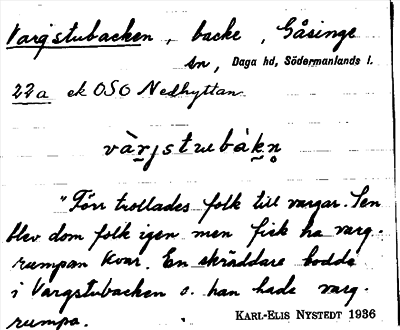 Vargstubacken, backe, Gåsinge
sn, Daga hd, Södermanlands l.
22a ek OSO Nedhyttan
vàr̯jstubàk̯n̥
"Förr trollades folk till vargar. Sen
blev dom folk igen men fick ha varg-
rumpan kvar. En skräddare bodde
i Vargstubacken o. han hade varg-
rumpa.
KARL-ELIS NYSTEDT 1936